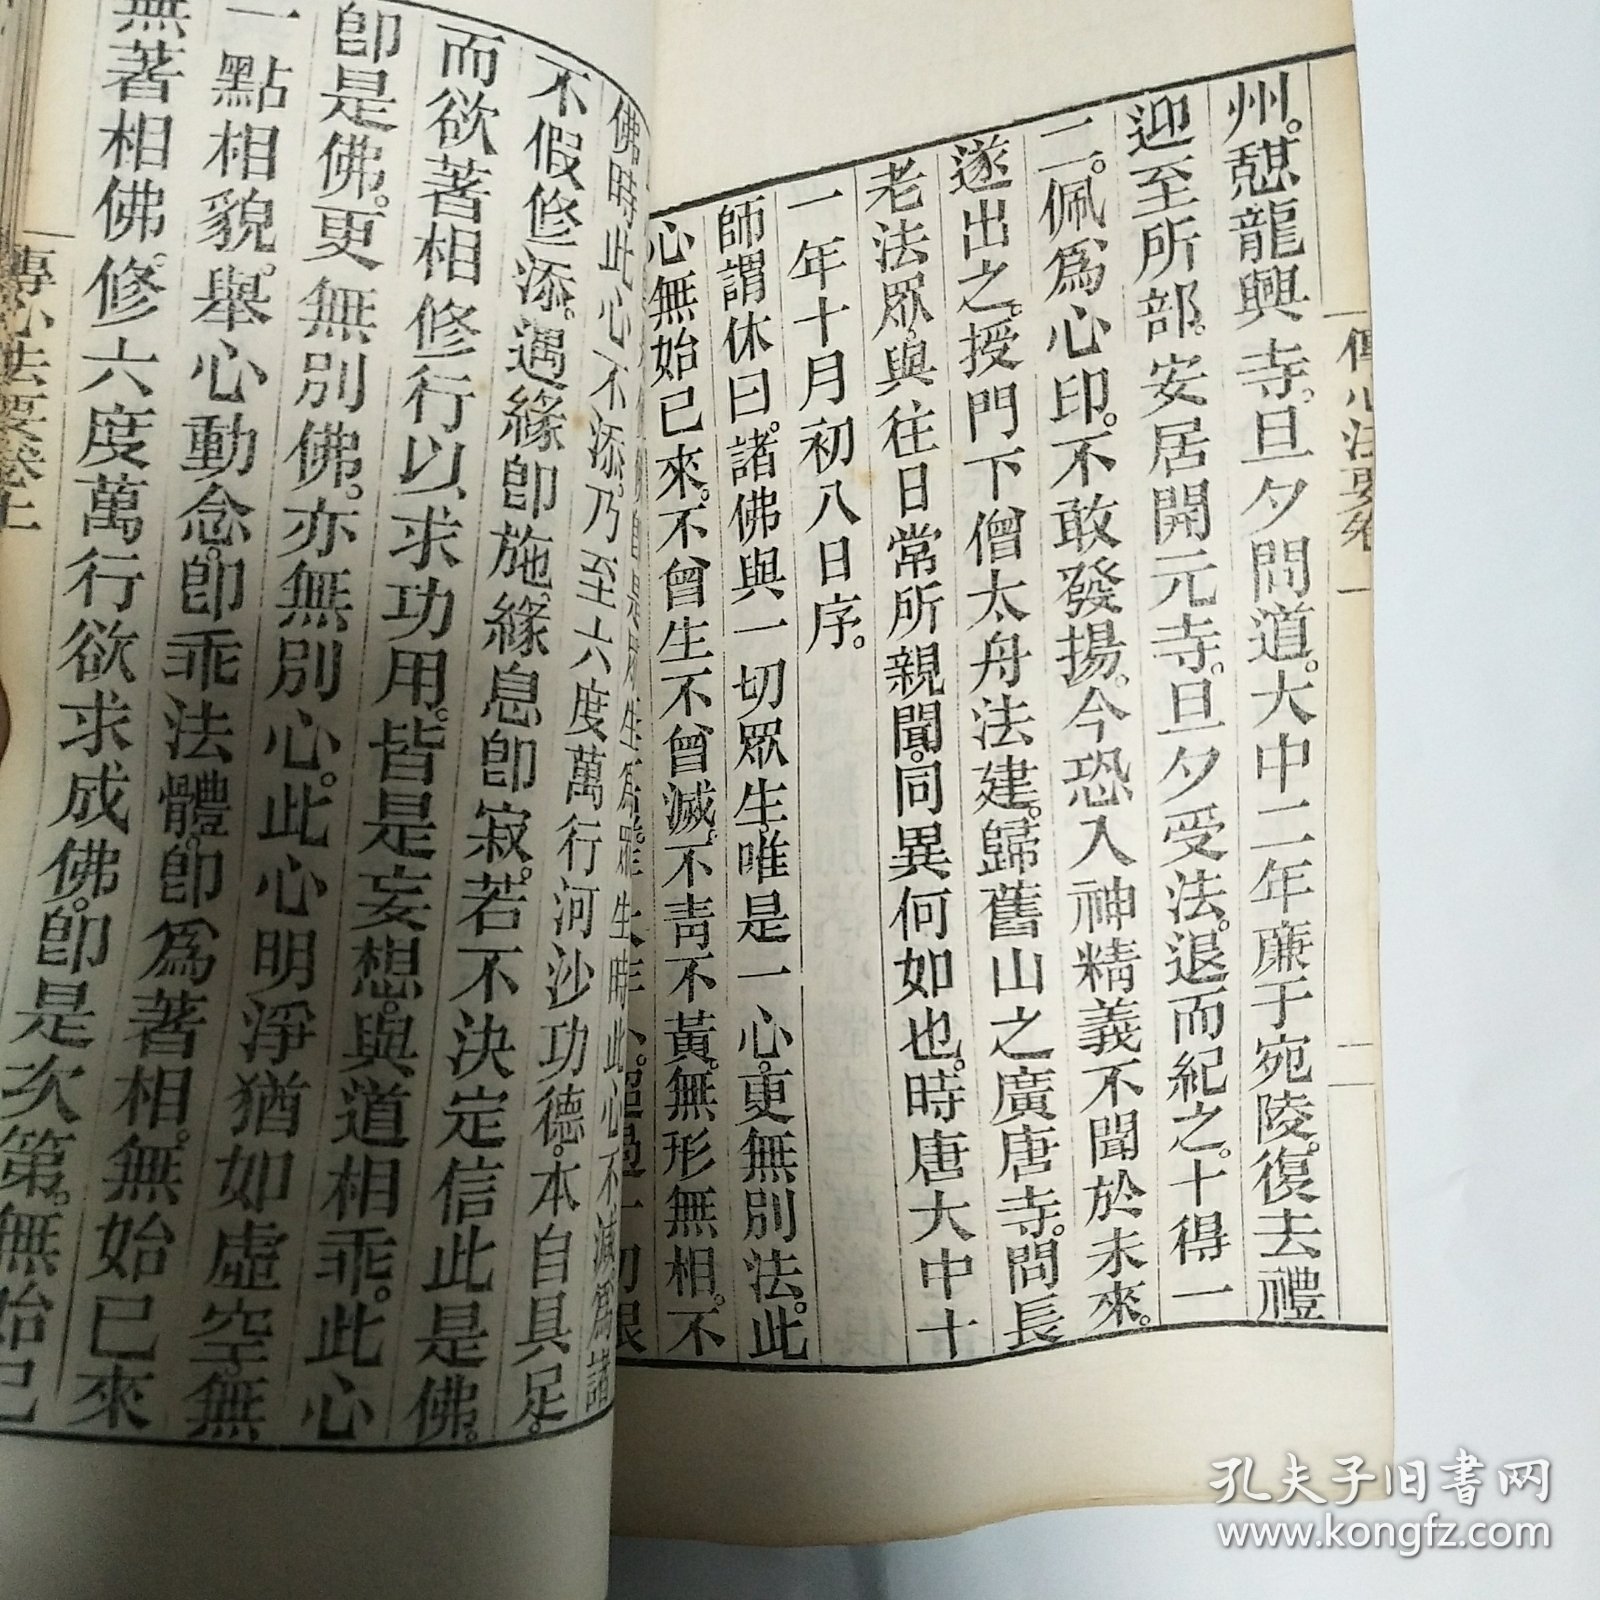 傳心法要卷
州。憇龍興寺。旦夕問道。大中二年廉于宛陵。復去禮
迎至所部。安居開元寺。旦夕受法。退而紀之。十得一
二。佩爲心印。不敢發揚。今恐入神精義不聞於未來。
遂出之。授門下僧太舟法建。歸舊山之廣唐寺。問長
老法眾。與往日常所親聞。同異何如也。時唐大中十
一年十月初八日序。
師謂休曰。諸佛與一切眾生。唯是一心。更無別法。此
心無始已來。不曾生不曾滅。不青不黃。無形無相。不
佛時此心不添。乃至六度萬行河沙功德。本自具足。
不假修添。遇緣即施。緣息即寂。若不決定信此是佛。
而欲著相修行以求功用。皆是妄想。與道相乖。此心
即是佛。更無別佛。亦無別心。此心明淨猶如虛空。無
一點相貌。舉心動念。即乖法體。即爲著相。無始已來
無著相佛。修六度萬行欲求成佛。即是次第。無始已
傳心法要卷上
孔夫子旧书网
www.kongfz.com